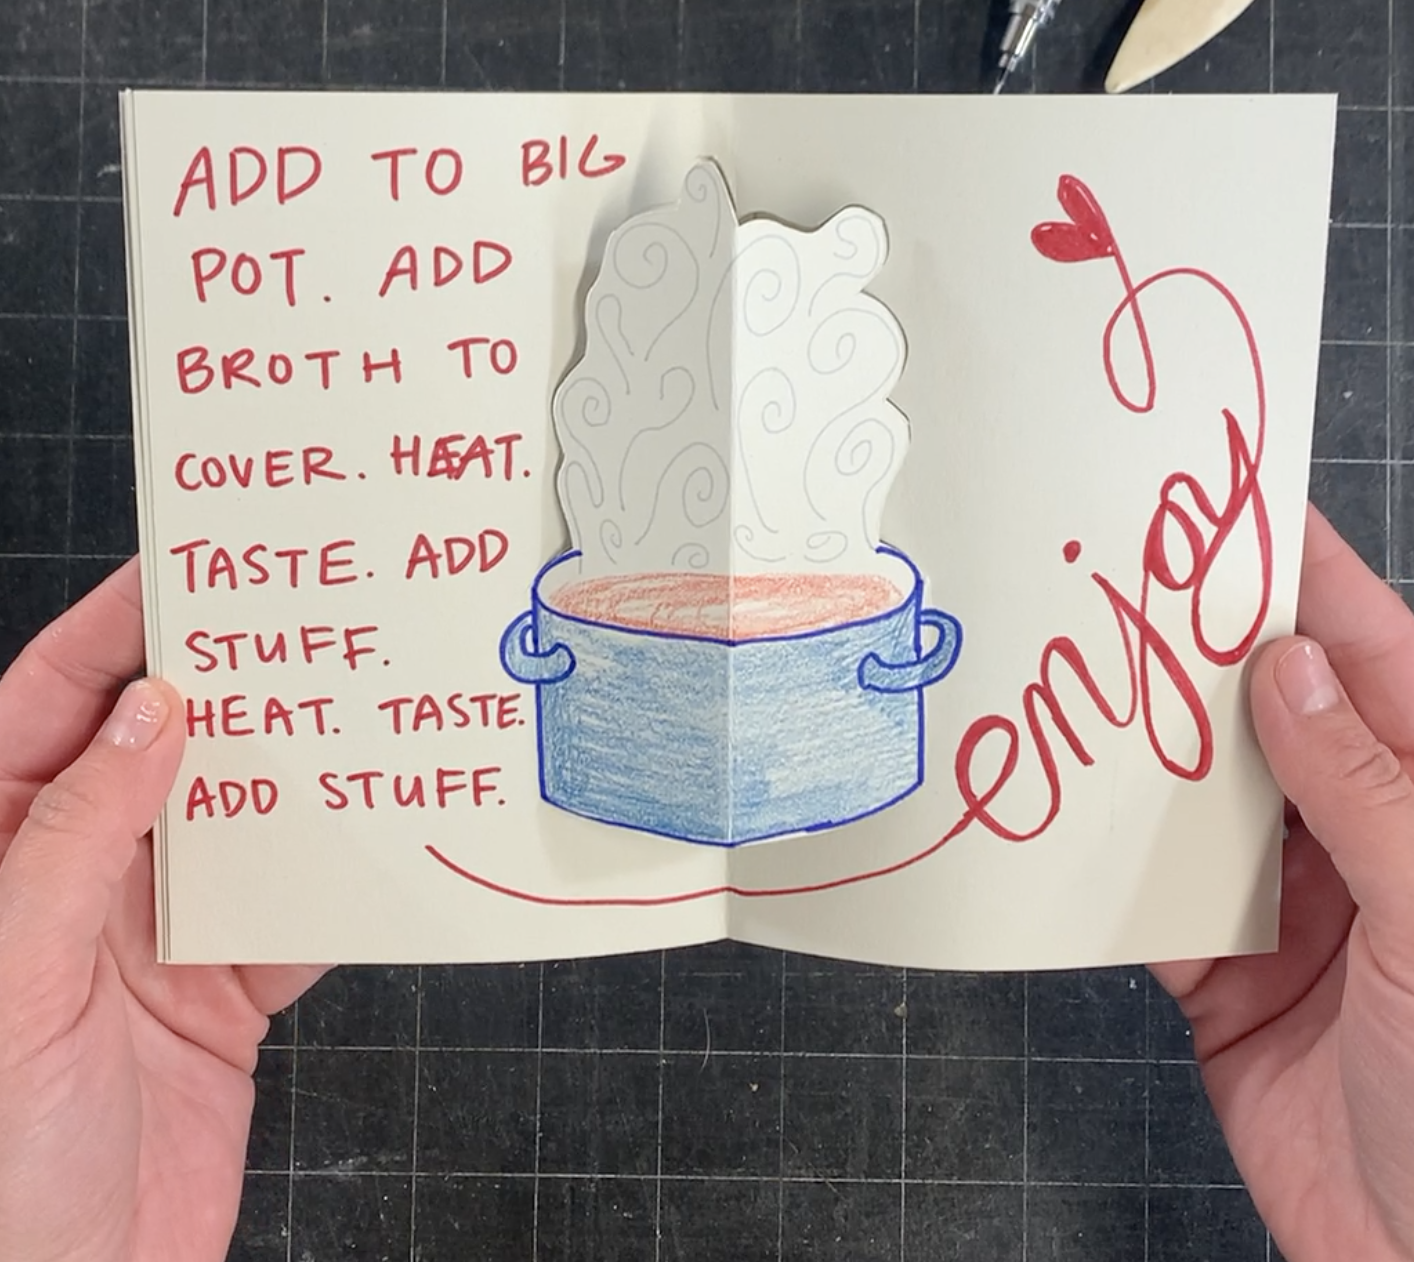 ADD TO BIG
POT. ADD
BROTH TO
COVER. HEAT.
TASTE. ADD
STUFF.
HEAT. TASTE.
ADD STUFF.
enjoy